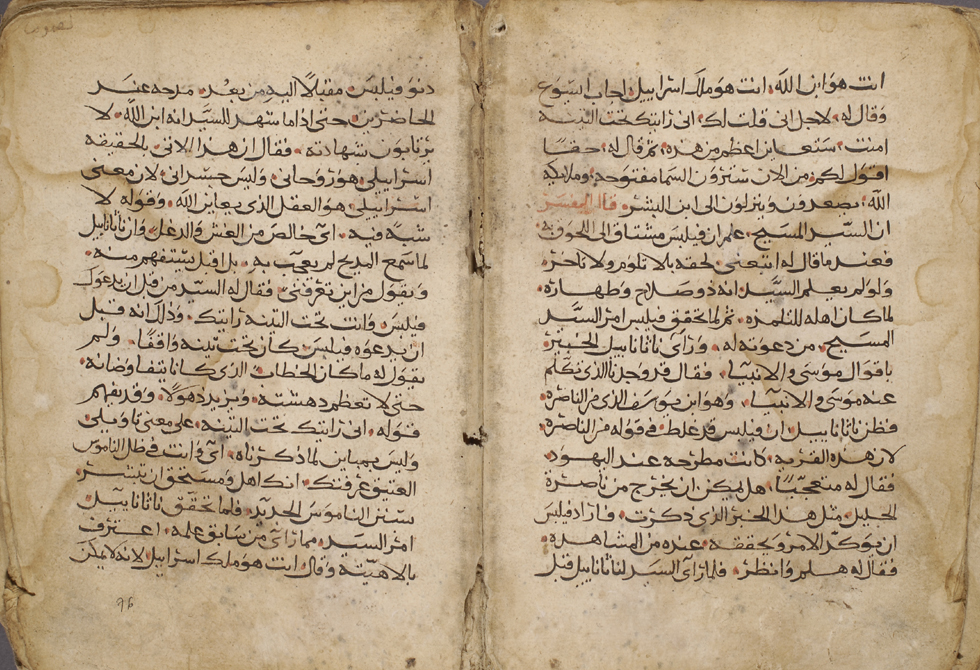 انت هو ابن الله. انت هو ملك اسراييل. اجاب ايسوع
وقال له. لاجل اني قلت لك. اني رايتك تحت التينه
امنت. ستعاين اعظم من هذه. ثم قال له. حقا
اقول لكم. من الان سترون السما مفتوحه. وملايكه
الله. يصعدون وينزلون الى ابن البشر. قال المفسر
ان السيد المسيح. علم ان فيلبس مشتاق الى اللحوق به
فعند ما قال له اتبعني. لحقه بلا تلوم ولا تاخر.
ولو لم يعلم السيد انه ذو صلاح وطهاره.
لما كان اهله للتلمذه. ثم لما تحقق فيلبس امر السيد
المسيح. من دعوته له. وراى ناثانابيل الخبير
باقوال موسى والانبيا. فقال قد وجدنا الذي تكلم
عنه موسى والانبيا. وهو ابن يوسف الذي من الناصره.
فظن ناثانابيل. ان فيلبس قد غلط. في قوله من الناصره.
لان هذه القريه. كانت مطرحه عند اليهود.
فقال له متعجبا. هل يمكن ان يخرج من ناصرة
الجليل. مثل هذا الخبر الذي ذكرت. فاراد فيلبس
ان يوكد الامر ويحققه. عنده من المشاهده.
فقال له هلم وانظر. فلما راى السيد لناثانابيل قبل
دنو فيلبس. مقبلا اليه من بعد. مدحه عند
الحاضرين. حتى اذا ما شهد للسيد انه ابن الله. لا
يرتابون شهادته. فقال ان هذا الاتي بالحقيقه
اسراييلي. هو روحاني. وليس جسداني. لان معنى
اسراييلي. هو العقل الذي يعاين الله. وقوله لا
شبه فيه. اي خالص من الغش والدغل. وان ناثانابيل
لما سمع المديح لم يعجب به. بل اقبل يستفهم منه.
ويقول من اين تعرفني. فقال له السيد من قبل ان يدعوك
فيلبس. وانت تحت التينه رايتك. وذلك انه قبل
ان يدعوه فيلبس كان تحت تينه واقفا. ولم
يقول له ما كان الخطاب الذي كانا يتفاوضانه.
حتى لا تعظم دهشته. ويزيد ذهولا. وقد يفهم
قوله. اني رايتك تحت التينه. على معنى تاويلي.
وليس بمباين لما ذكرناه. اي وانت في ظل الناموس
العتيق عرفتك. انك اهل ومستحق ان تستتر.
بستر الناموس الجديد. فلما تحقق ناثانابيل
امر السيد. مما راى من سابق علمه. اعترف
بالاهيته وقال انت هو ملك اسراييل لانه لا يمكن